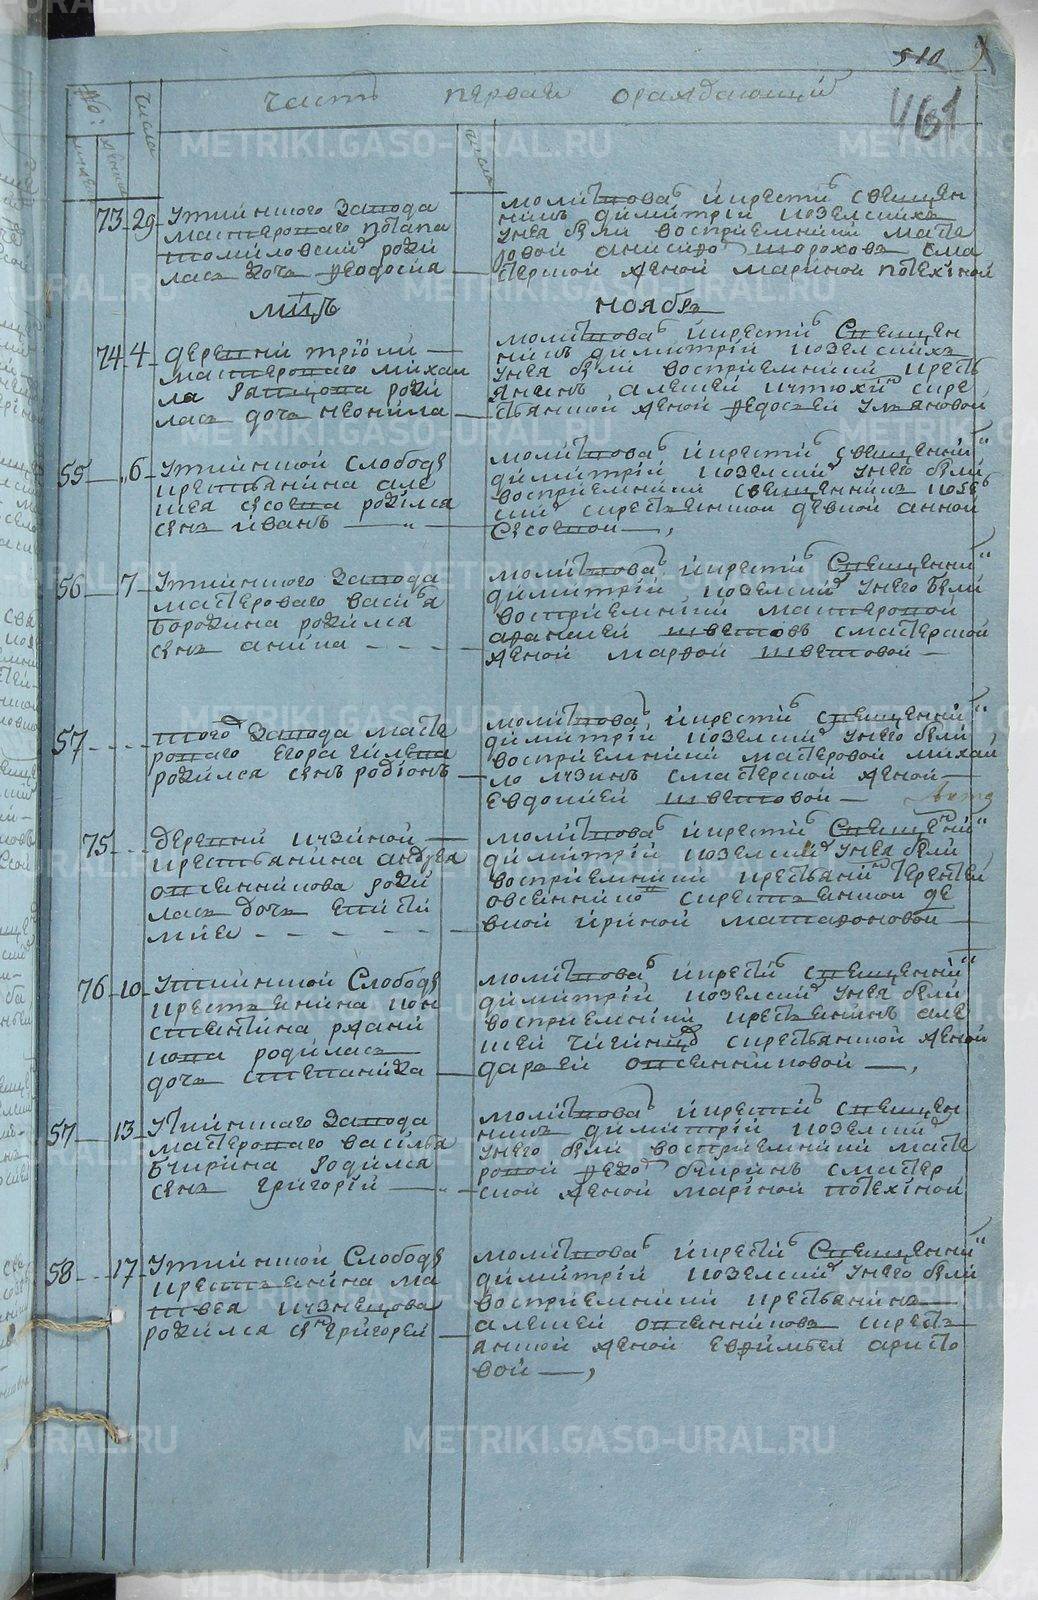 510
461
часть первая ораждающий
№:
числа
мужеск
женска
числа
73 29 Уткинского завода
мастероваго потапа
томиловский роди
лась дочь феодосиа
молитвовалъ и крестилъ священ
никъ димитрий козелскихъ
у нея были восприемники масте
ровой анисифо шороховъ сма
стерской женой мариной потехиной
мцъ ноябрь
74 4 деревни трёки
мастероваго михаи
ла роди
лась дочь неонила
молитвовалъ и крестилъ священ
никъ димитрий козелскихъ
у нея были восприемники кресть
янинъ алексей скре
стьянской женой федосьей ульяновой
55 6 Уткинской слободы
крестьянина але
ксея сысоева родился
сынъ иванъ
молитвовалъ и крестилъ священникъ
димитрий козелский у него были
восприемники священникъ козел
ский скрестьянской девкой анной
сысоевой
56 7 Уткинского завода
мастероваго василья
бородина родился
сынъ аника
молитвовалъ и крестилъ священникъ
димитрий козелский у него были
восприемники мастеровой
афанасей шветовъ смастерской
женой марфой шветовой
57 того завода масте
роваго егора гилева
родился сынъ родионъ
молитвовалъ и крестилъ священникъ
димитрий козелский у него были
восприемники мастеровой михаи
ло лузинъ смастерской женой
евдокией шветовой
75 деревни лузиной
крестьянина андрея
овсянникова роди
лась дочь
молитвовалъ и крестилъ священникъ
димитрий козелский у нея были
восприемники крестьянинъ терентей
овсянниковъ скрестьянской де
вкой ириной матафоновой
76 10 Уткинской слободы
крестьянина кон
стентина
родилась
дочь степанида
молитвовалъ и крестилъ священникъ
димитрий козелский у нея были
восприемники крестьянинъ але
ксей скрестьянской женой
дарьей овсянниковой
57 13 Уткинского завода
мастероваго василья
бчирина родился
сынъ григорий
молитвовалъ и крестилъ священ
никъ димитрий козелский
у него были восприемники масте
ровой федо бчиринъ смастер
ской женой мариной потехиной
58 17 Уткинской слободы
крестьянина ма
твея кузнецова
родился сынъ григорей
молитвовалъ и крестилъ священникъ
димитрий козелский у него были
восприемники крестьянинъ
алексей овсянниковъ скресть
янской женой евфимьей аристо
вой